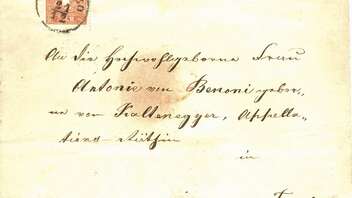 An die Hochwohlgeborne Frau
Antonie von Benoni gebor„
ne von Kaltenegger, Appella„
tions-Räthin
in